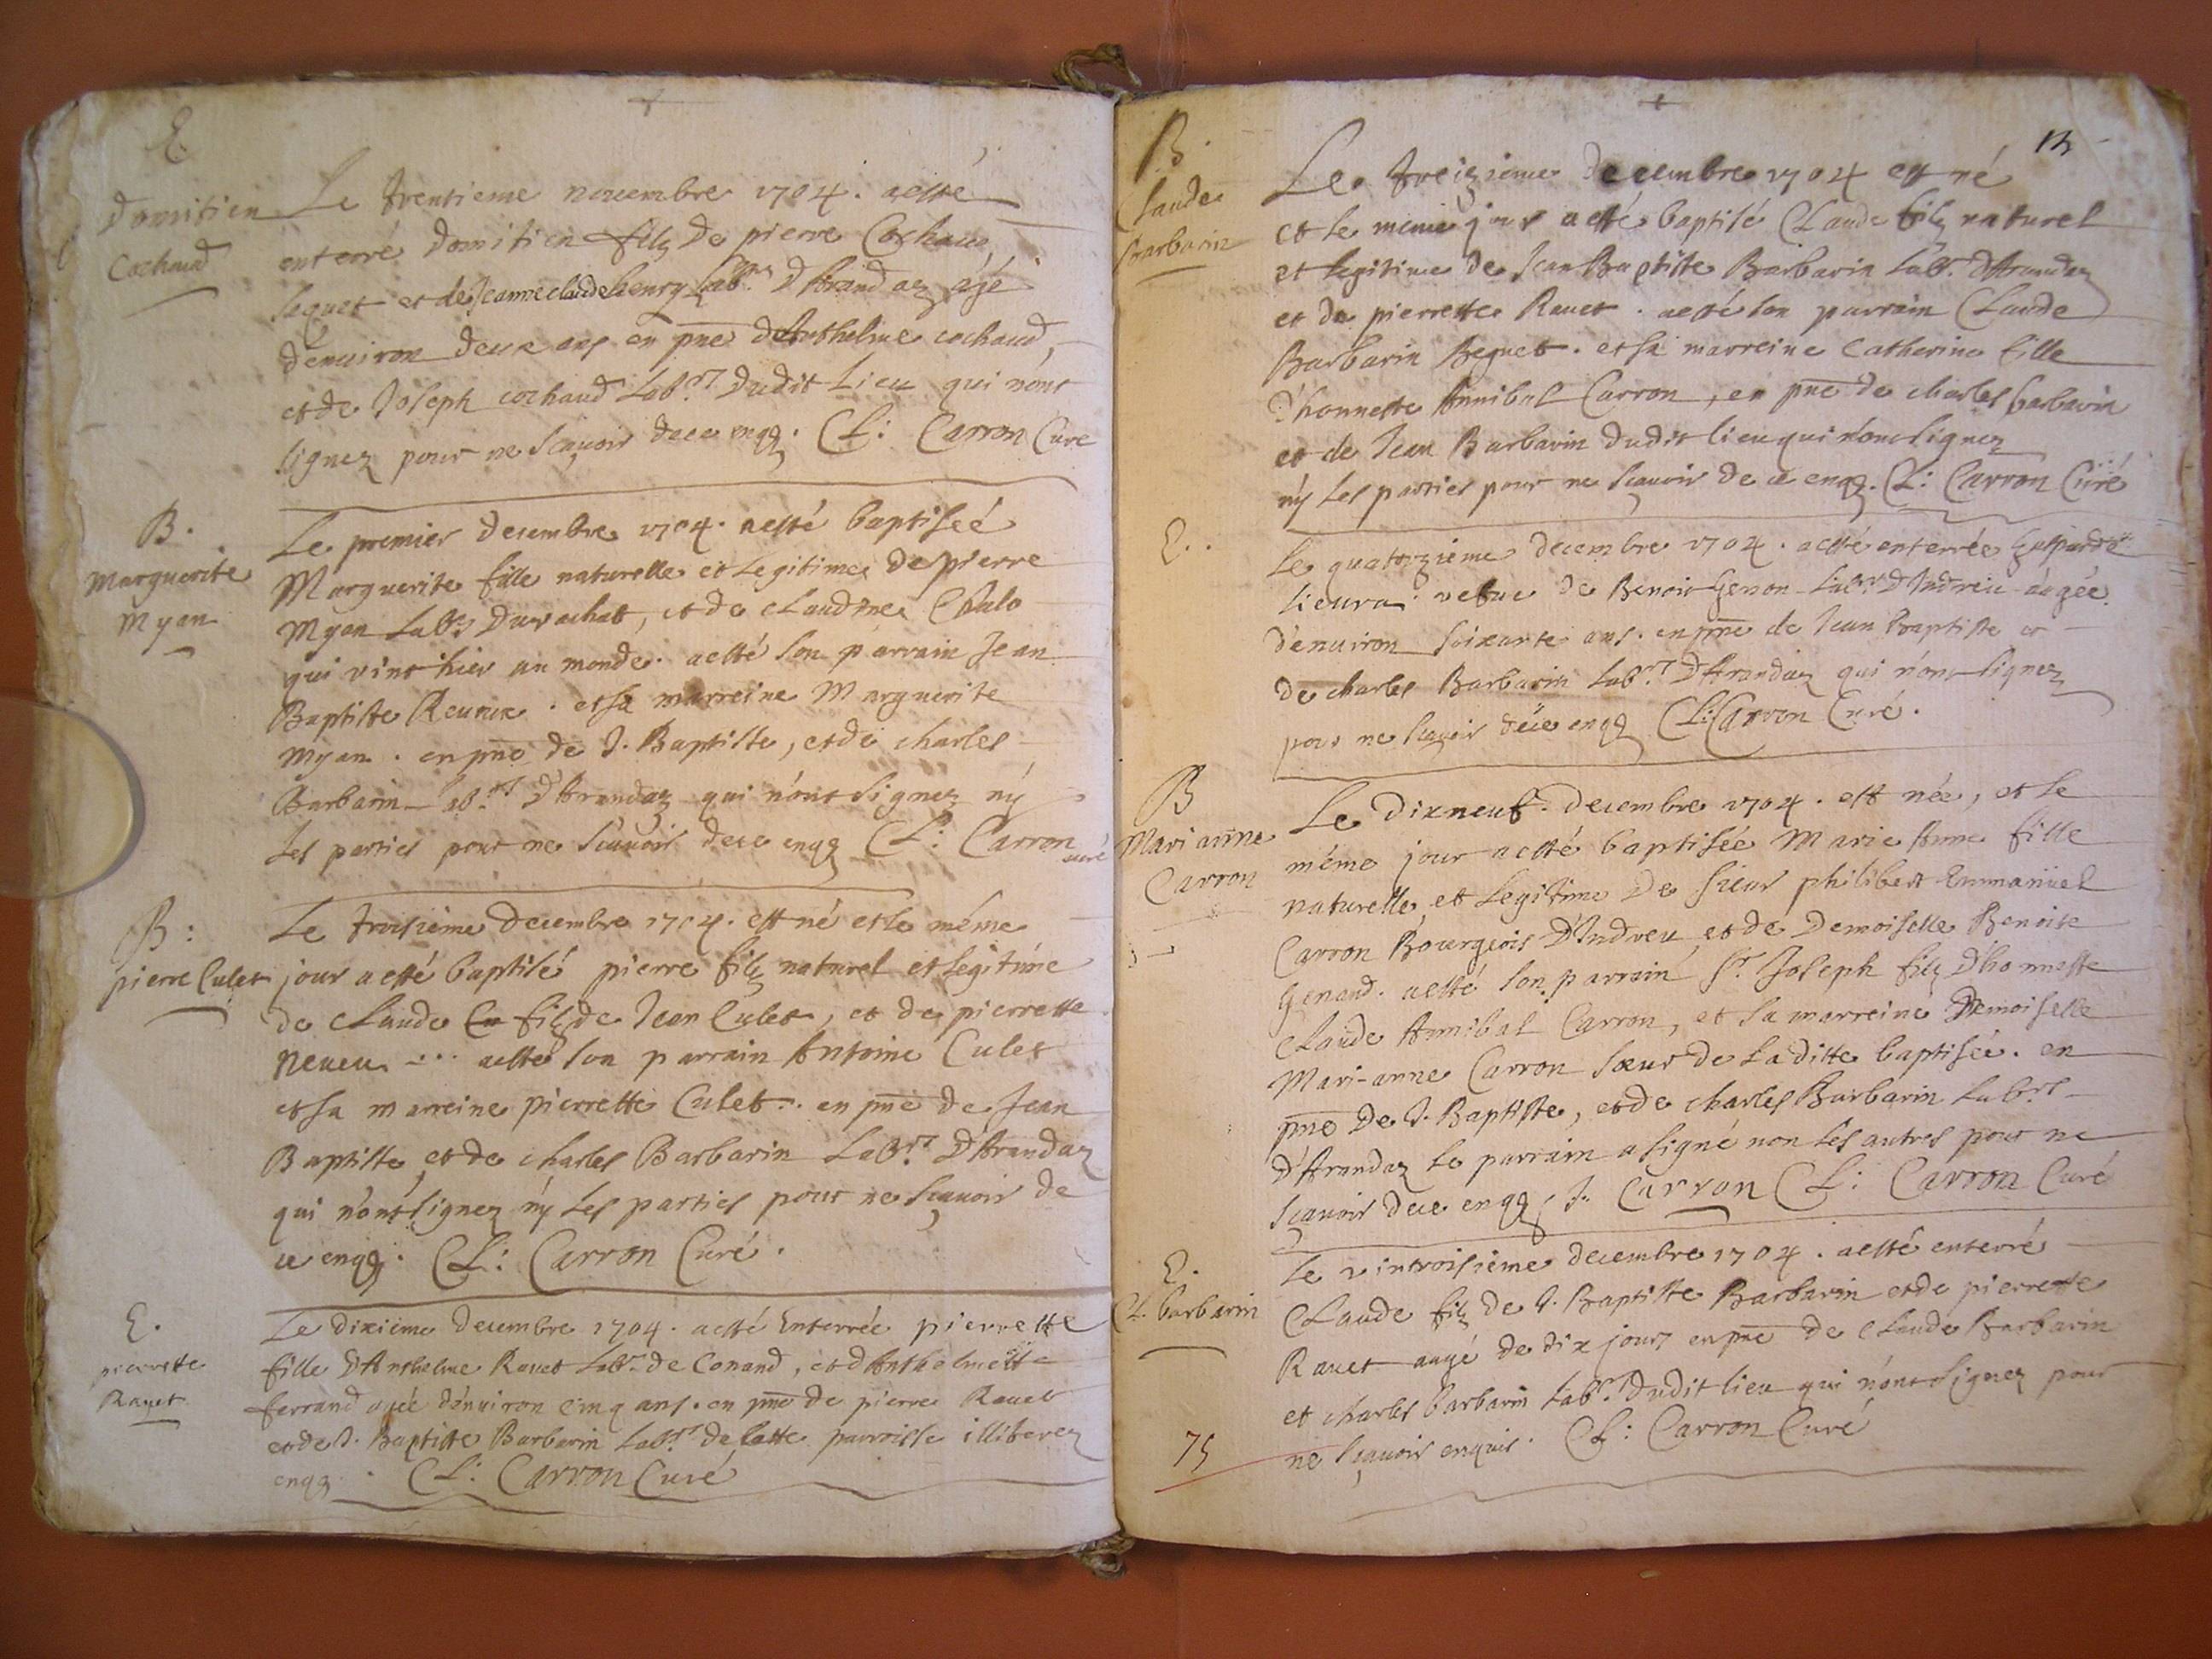 E.
Domitien
Cochaud
Le trentieme novembre 1704. aesté
enterré Domitien filz De pierre Cochaud
Jaquet et de Jeanne claude henry Labrs D'Arandaz agé
d'environ deux ans en pñe d'Anthelme cochaud,
et de Joseph cochaud Labrs Dudit Lieu qui n'ont
signez pour ne sçavoir dece enqz. CL: Carron Curé
B.
Marguerite
Myan
Le premier decembre 1704. aesté baptiseé
Marguerite fille naturelle et Legitime De pierre
Myan Labr Du rachat, et de claudine Chalo
qui vint hier au monde. aesté son parrain Jean
Baptiste Reveux. et sa marreine Marguerite
Myan. en pñe de J. Baptiste, et de charles
Barbarin Labrs D'Arandaz qui n'ont signez ny
Les parties pour ne sçavoir dece enqz CL: Carron
curé
B:
pierre Culet
Le troisieme Decembre 1704. est né et le méme
jour aesté baptisé pierre filz naturel et Legitime
de claude Cu filz de Jean Culet, et de pierrette
Neveu ... aesté son parrain Antoine Culet
et sa marreine pierrette Culet.. en pñe de Jean
Baptiste et de charles Barbarin Labrs D'Arandaz
qui n'ont signez ny Les parties pour ne sçavoir de
ce enqz. CL: Carron Curé.
E.
pierrette
Ravet
Le dixieme decembre 1704. aesté Enterrée pierrette
fille D'Anthelme Ravet Labr. de Conand, et d'Anthelmette
ferrand agée d'environ cinq ans. en pñe de pierre Ravet
et de J. Baptiste Barbarin Labrs de cette parroisse illiterez
enqz. CL: Carron Curé
B.
Claude
Barbarin
13
Le treizieme Decembre 1704 est né
et le meme jour aesté baptisé Claude filz naturel
et legitime de Jean Baptiste Barbarin Labr. D'Arandaz
et de pierrette Ravet. aesté son parrain Claude
Barbarin Beguet. et sa marreine Catherine fille
d'honneste Annibal Carron, en pñe de charles barbarin
et de Jean Barbarin dudit lieu qui n'ont signez
ny Les parties pour ne sçavoir de ce enqz. CL: Carron Curé
E.
Le quatorzieme decembre 1704. aesté enterrée Gasparde
Lieura vefve de Benoit Genon Labr. D'Indrieu aagée
d'environ soixante ans. en pñe de Jean baptiste et
de charles Barbarin Labrs D'Arandaz qui n'ont signez
pour ne sçavoir dece enqz CL: Carron Curé.
B
Marianne
Carron
Le Dixneuf. decembre 1704. est née, et le
méme jour aesté baptisée Marie Anne fille
naturelle et Legitime De sieur philibert Emmanuel
Carron Bourgeois D'Indrieu et de Demoiselle Benoite
Genand. aesté son parrain sr. Joseph filz D'honneste
Claude Annibal Carron, et sa marreine Demoiselle
Mari-anne Carron sœur de la ditte baptisée. en
pñe De J. Baptiste, et de charles Barbarin Labrs
d'Arandaz Le parrain a signé non Les autres pour ne
sçavoir dece enqz J. Carron CL: Carron Curé
E.
CL. barbarin
Le vintroisieme decembre 1704. aesté enterré
Claude filz de J. Baptiste Barbarin et de pierrette
Ravet aagé de dix jours en pñe de claude Barbarin
et charles barbarin Labrs Dudit lieu qui n'ont signez pour
ne sçavoir enquis. CL: Carron Curé
75